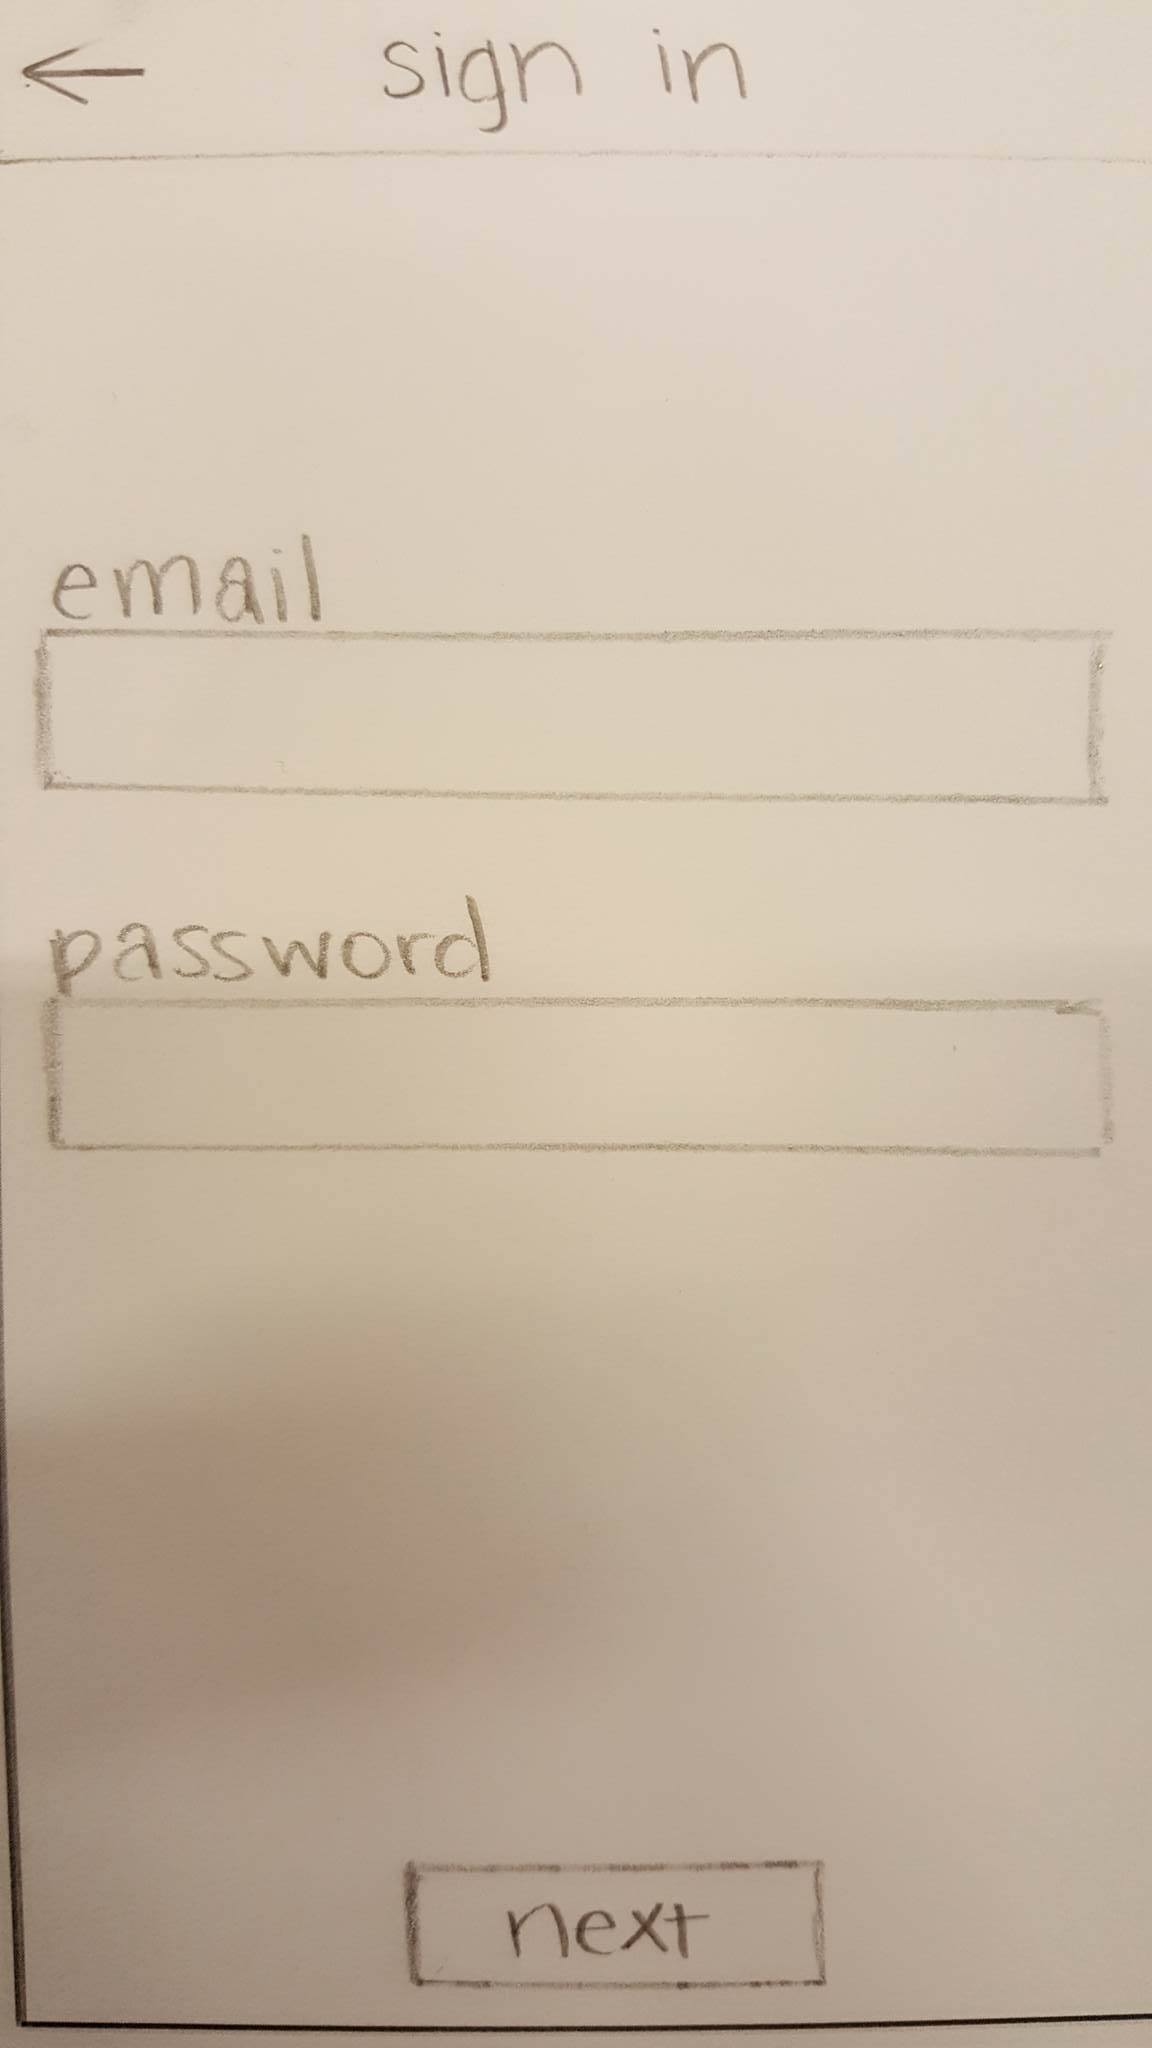 sign in
email
password
next